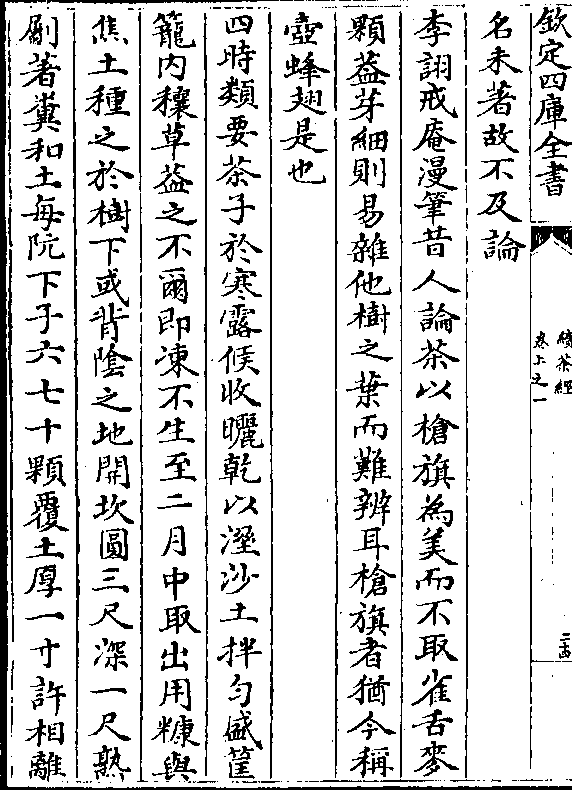 欽定四庫全書
續茶經
卷上之一
二十四
名未著故不及論
李詡戒庵漫筆昔人論茶以槍旗為美而不取雀舌麥
顆葢芽細則易雜他樹之葉而難辨耳槍旗者猶今稱
壺蜂翅是也
四時類要茶子於寒露候收曬乾以溼沙土拌勻盛筐
籠内穰草葢之不爾即凍不生至二月中取出用糠與
焦土種之於樹下或背陰之地開坎圓三尺深一尺熟
劚著糞和土每阬下子六七十顆覆土厚一寸許相離